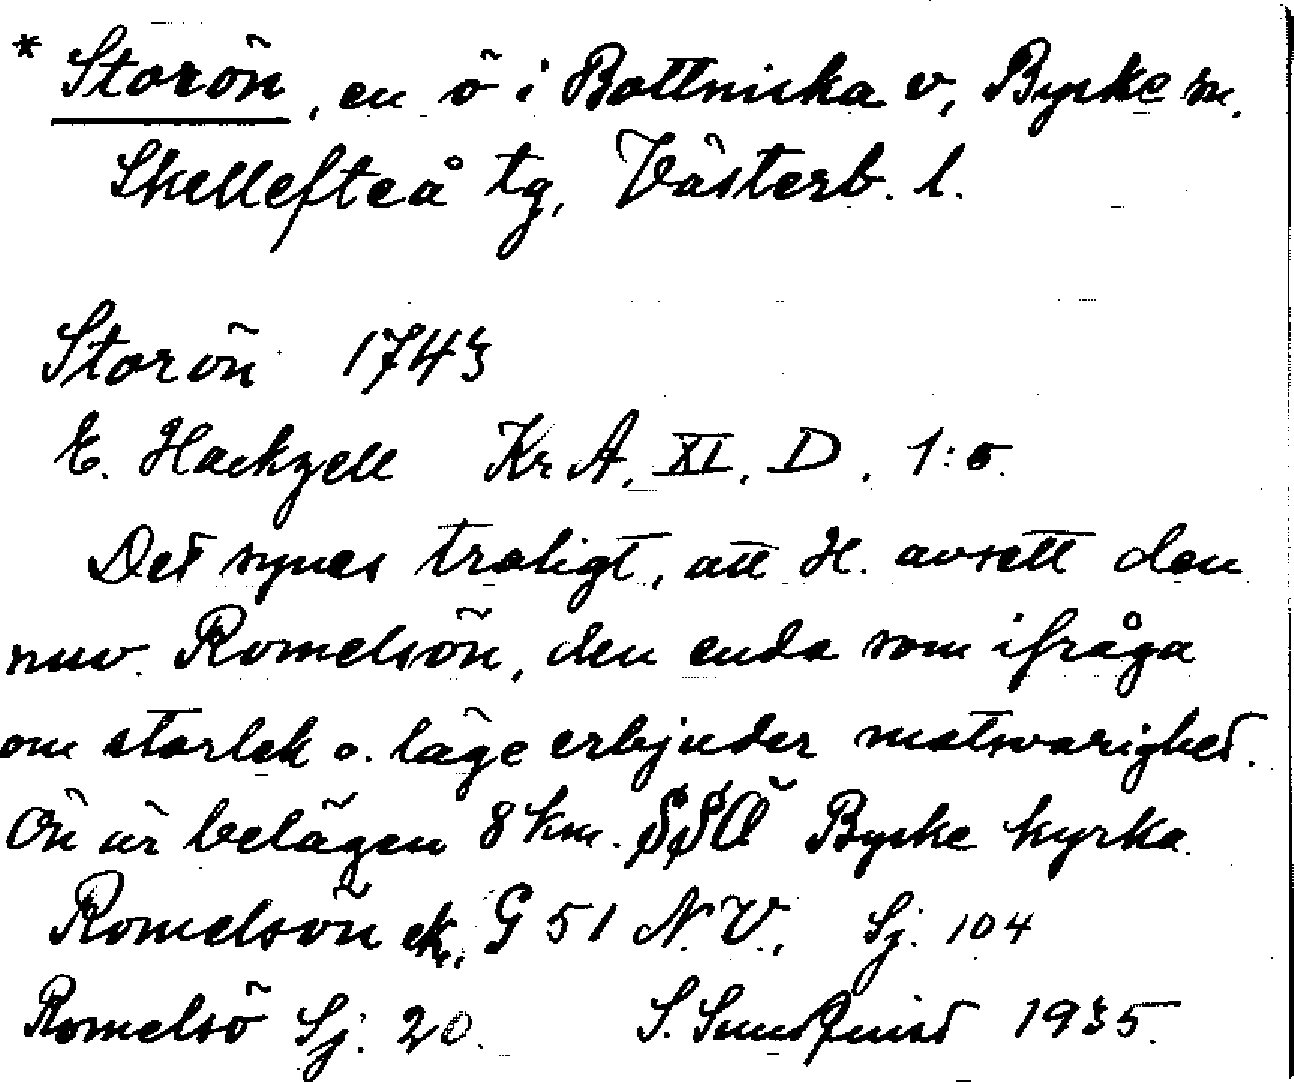 * Storön, en ö i Bottniska v, Byske sn.
Skellefteå tg, Västerb. l.
Storön 1743
E. Hackzell Kr A. XI. D. 1:5.
Det synes troligt, att H. avsett den
nuv. Romelsön, den enda som ifråga
om storlek o. läge erbjuder motsvarighet.
Ön är belägen 8 km. SSÖ Byske kyrka.
Romelsön ek., G 51 N.V., Sj. 104
Romelsö Sj. 20. S. Sundquist 1935.